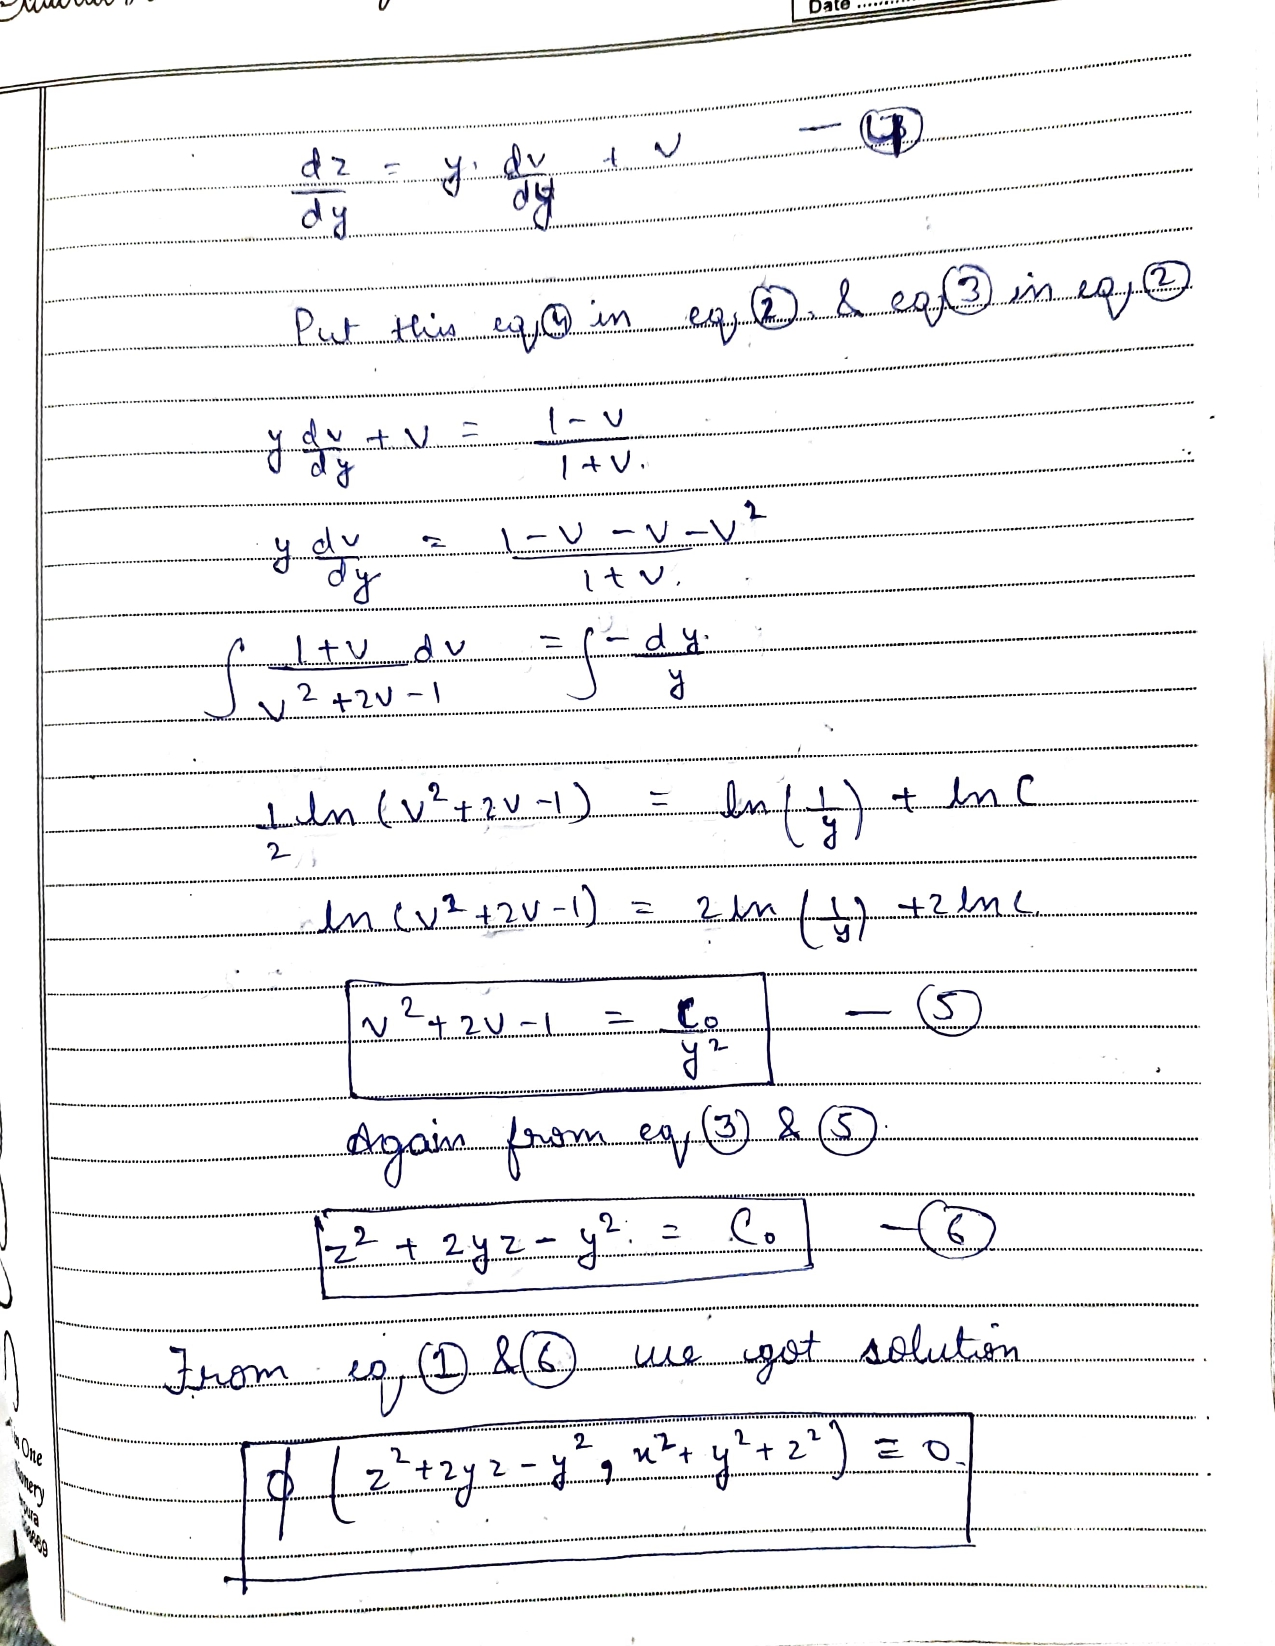 Date ........
dz/dy = y. dv/dy + v — (4)
Put this eq, (4) in eq, (2). & eq, (3) in eq, (2)
y dv/dy + v = (1-v)/(1+v).
y dv/dy = (1-v-v-v²)/(1+v).
∫ (1+v)/(v²+2v-1) dv = ∫ -dy/y
1/2 ln (v²+2v-1) = ln (1/y) + ln C
ln (v²+2v-1) = 2 ln (1/y) + 2 ln C.
v²+2v-1 = C₀/y² — (5)
Again from eq, (3) & (5).
z² + 2yz - y². = C₀ — (6)
From eq, (1) & (6) we got solution
ϕ (z²+2yz-y², x²+y²+z²) = 0.
One